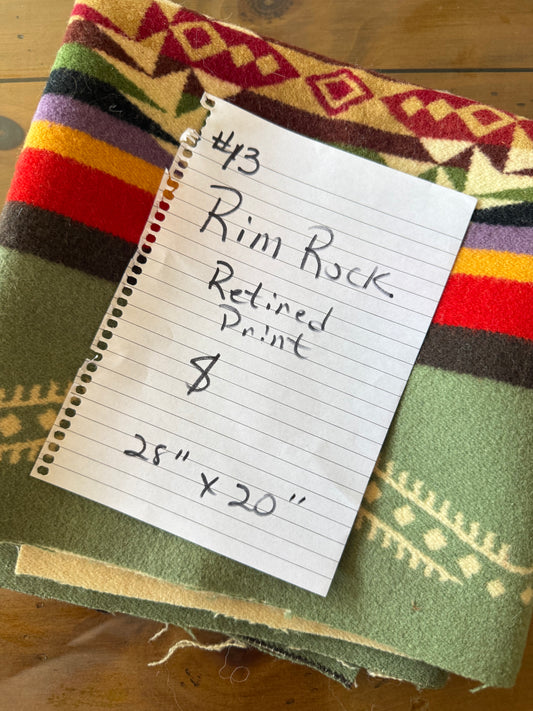 #13
Rim Rock
Retired
Print
$
28" x 20"